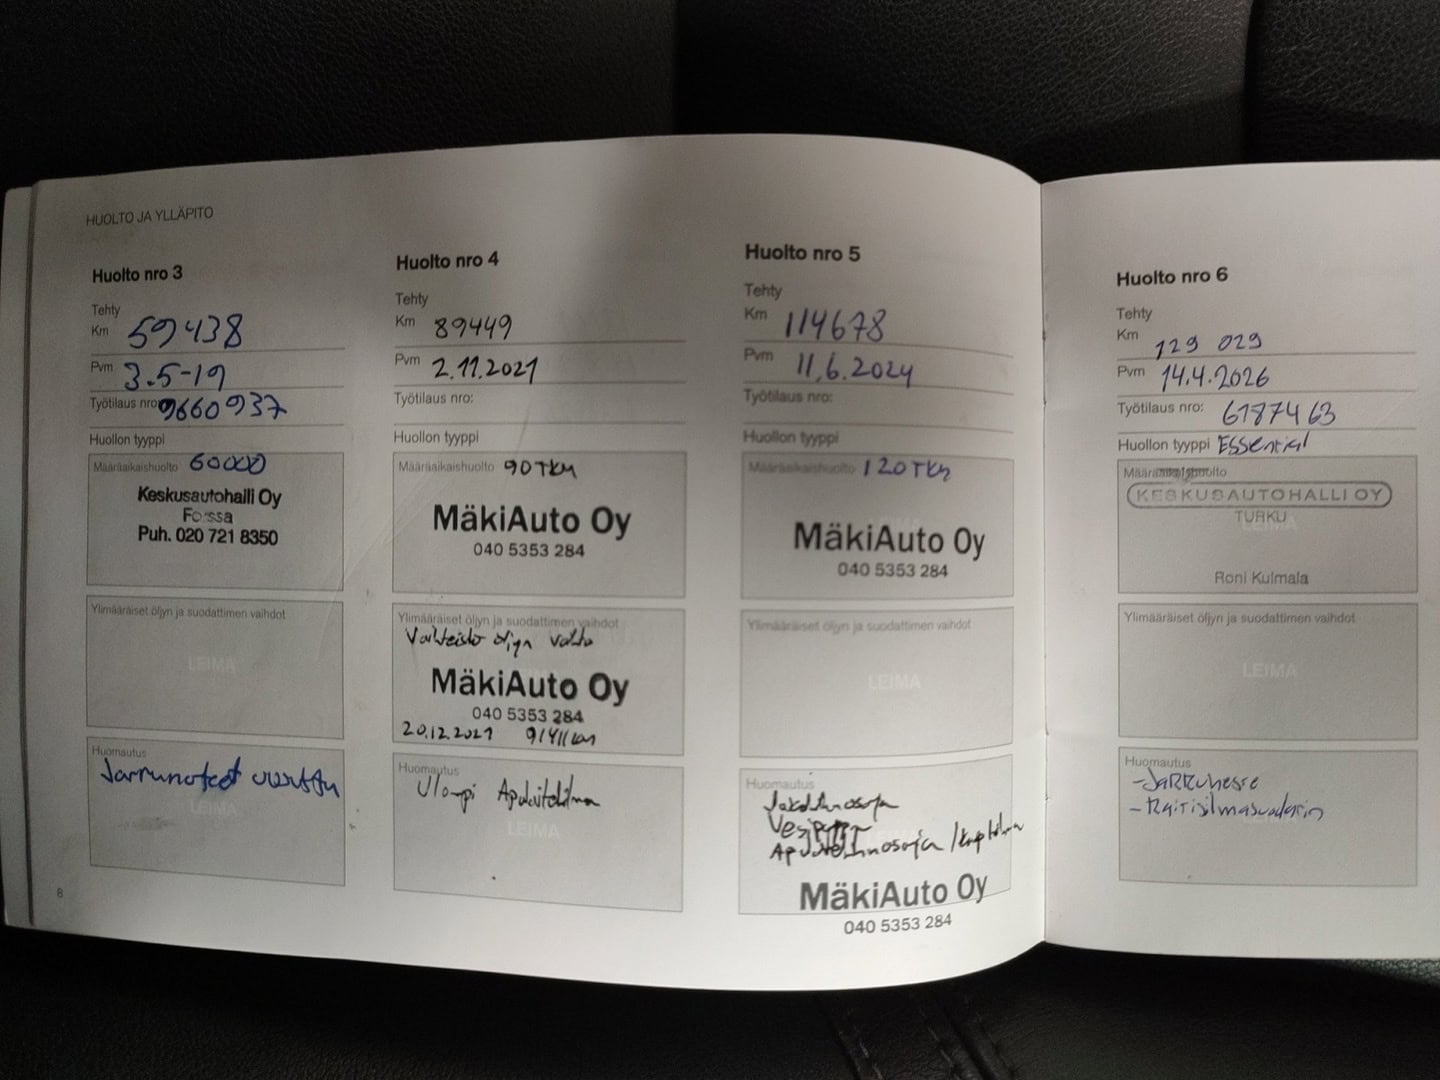 HUOLTO JA YLLÄPITO
Huolto nro 3
Tehty
Km 59438
Pvm 3.5-19
Työtilaus nro: 9660937
Huollon tyyppi
Määräaikaishuolto 60000
Keskusautohalli Oy
Forssa
Puh. 020 721 8350
Ylimääräiset öljyn ja suodattimen vaihdot
LEIMA
Huomautus
Jarrunesteet
LEIMA
8
Huolto nro 4
Tehty
Km 89449
Pvm 2.11.2021
Työtilaus nro:
Huollon tyyppi
Määräaikaishuolto 90 TKM
MäkiAuto Oy
040 5353 284
Ylimääräiset öljyn ja suodattimen vaihdot
Vaihteisto öljyn vaihto
MäkiAuto Oy
040 5353 284
20.12.2021 91411 km
Huomautus
LEIMA
Huolto nro 5
Tehty
Km 114678
Pvm 11.6.2024
Työtilaus nro:
Huollon tyyppi
Määräaikaishuolto 120 TKM
MäkiAuto Oy
040 5353 284
Ylimääräiset öljyn ja suodattimen vaihdot
LEIMA
Huomautus
Jakohihnasarja
MäkiAuto Oy
040 5353 284
Huolto nro 6
Tehty
Km 129 029
Pvm 14.4.2026
Työtilaus nro: 6187463
Huollon tyyppi Essential
Määräaikaishuolto
KESKUSAUTOHALLI OY
TURKU
LEIMA
Roni Kulmala
Ylimääräiset öljyn ja suodattimen vaihdot
LEIMA
Huomautus
-Jarruneste
-Raitisilmasuodatin